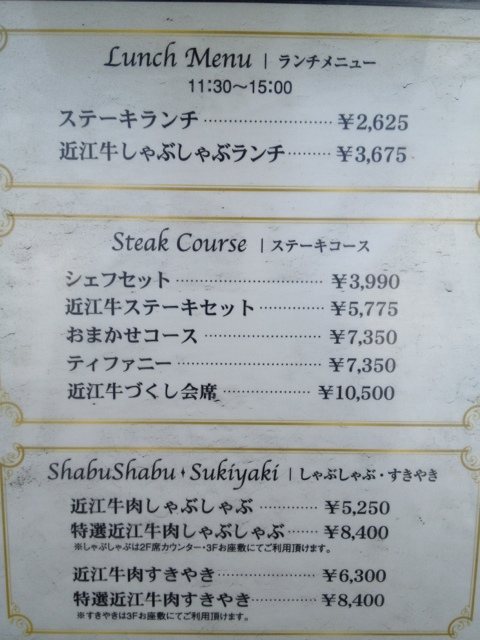 Lunch Menu | ランチメニュー
11:30〜15:00
ステーキランチ ………………………… ¥2,625
近江牛しゃぶしゃぶランチ ……… ¥3,675
Steak Course | ステーキコース
シェフセット ………………………… ¥3,990
近江牛ステーキセット …………… ¥5,775
おまかせコース …………………… ¥7,350
ティファニー ………………………… ¥7,350
近江牛づくし会席 ………………… ¥10,500
ShabuShabu・Sukiyaki | しゃぶしゃぶ・すきやき
近江牛肉しゃぶしゃぶ ………… ¥5,250
特選近江牛肉しゃぶしゃぶ …… ¥8,400
※しゃぶしゃぶは2F席カウンター・3Fお座敷にてご利用頂けます。
近江牛肉すきやき ………………… ¥6,300
特選近江牛肉すきやき ………… ¥8,400
※すきやきは3Fお座敷にてご利用頂けます。